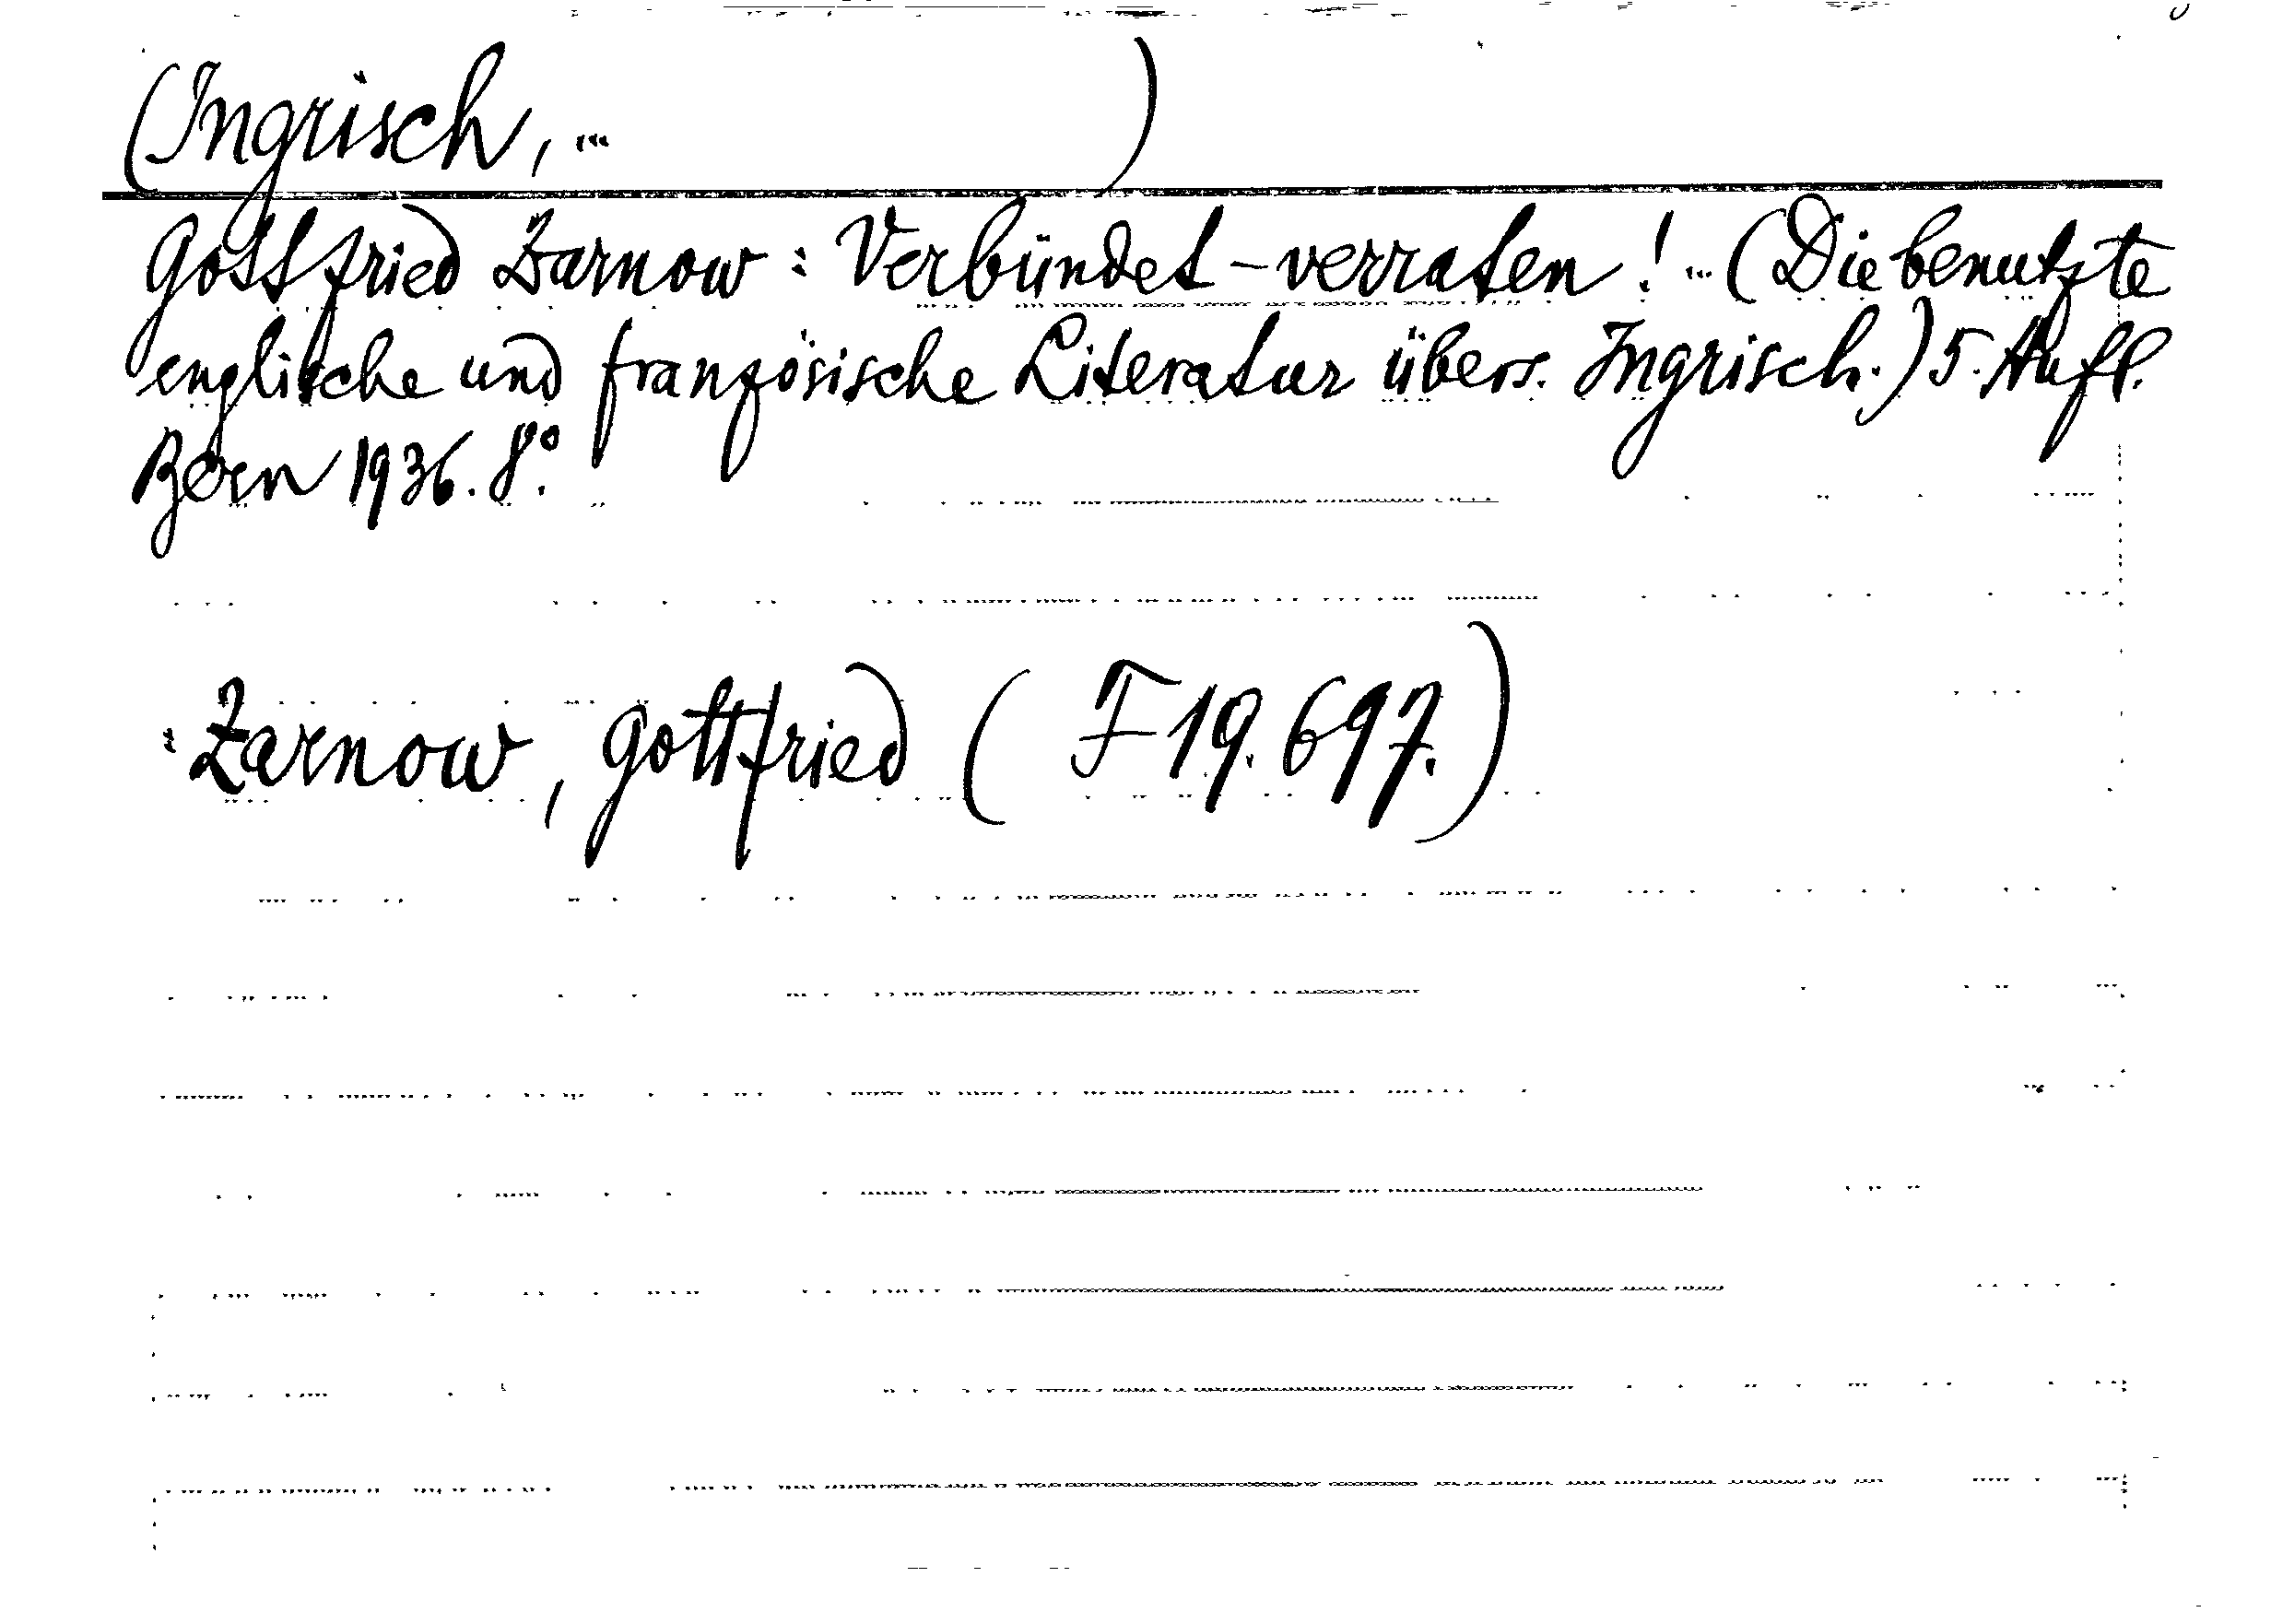 (Ingrisch, ... )
Gottfried Zarnow: Verbündet-verraten! ... (Die benutzte
englische und französische Literatur übers. Ingrisch.) 5. Aufl.
Bern 1936. 8°.
: Zarnow, Gottfried ( F 19.697.)